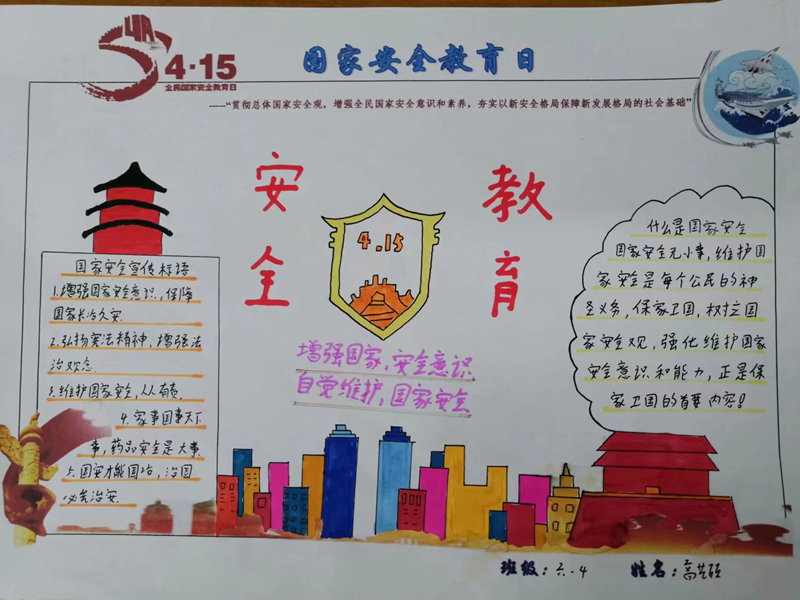 4·15
全民国家安全教育日
国家安全教育日
----“贯彻总体国家安全观，增强全民国家安全意识和素养，夯实以新安全格局保障新发展格局的社会基础”
安全
教育
4.15
增强国家，安全意识
自觉维护，国家安全
国家安全宣传标语
1.增强国家安全意识，保障
国家长治久安.
2.弘扬宪法精神，增强法
治观念
3.维护国家安全，人人有责.
4.家事国事天下
事，药品安全是大事.
5.国安才能国治，治国
必先治安.
什么是国家安全
国家安全无小事，维护国
家安全是每个公民的神
圣义务，保家卫国，树立国
家安全观，强化维护国家
安全意识和能力，正是保
家卫国的首要内容！
班级：六.4
姓名：高